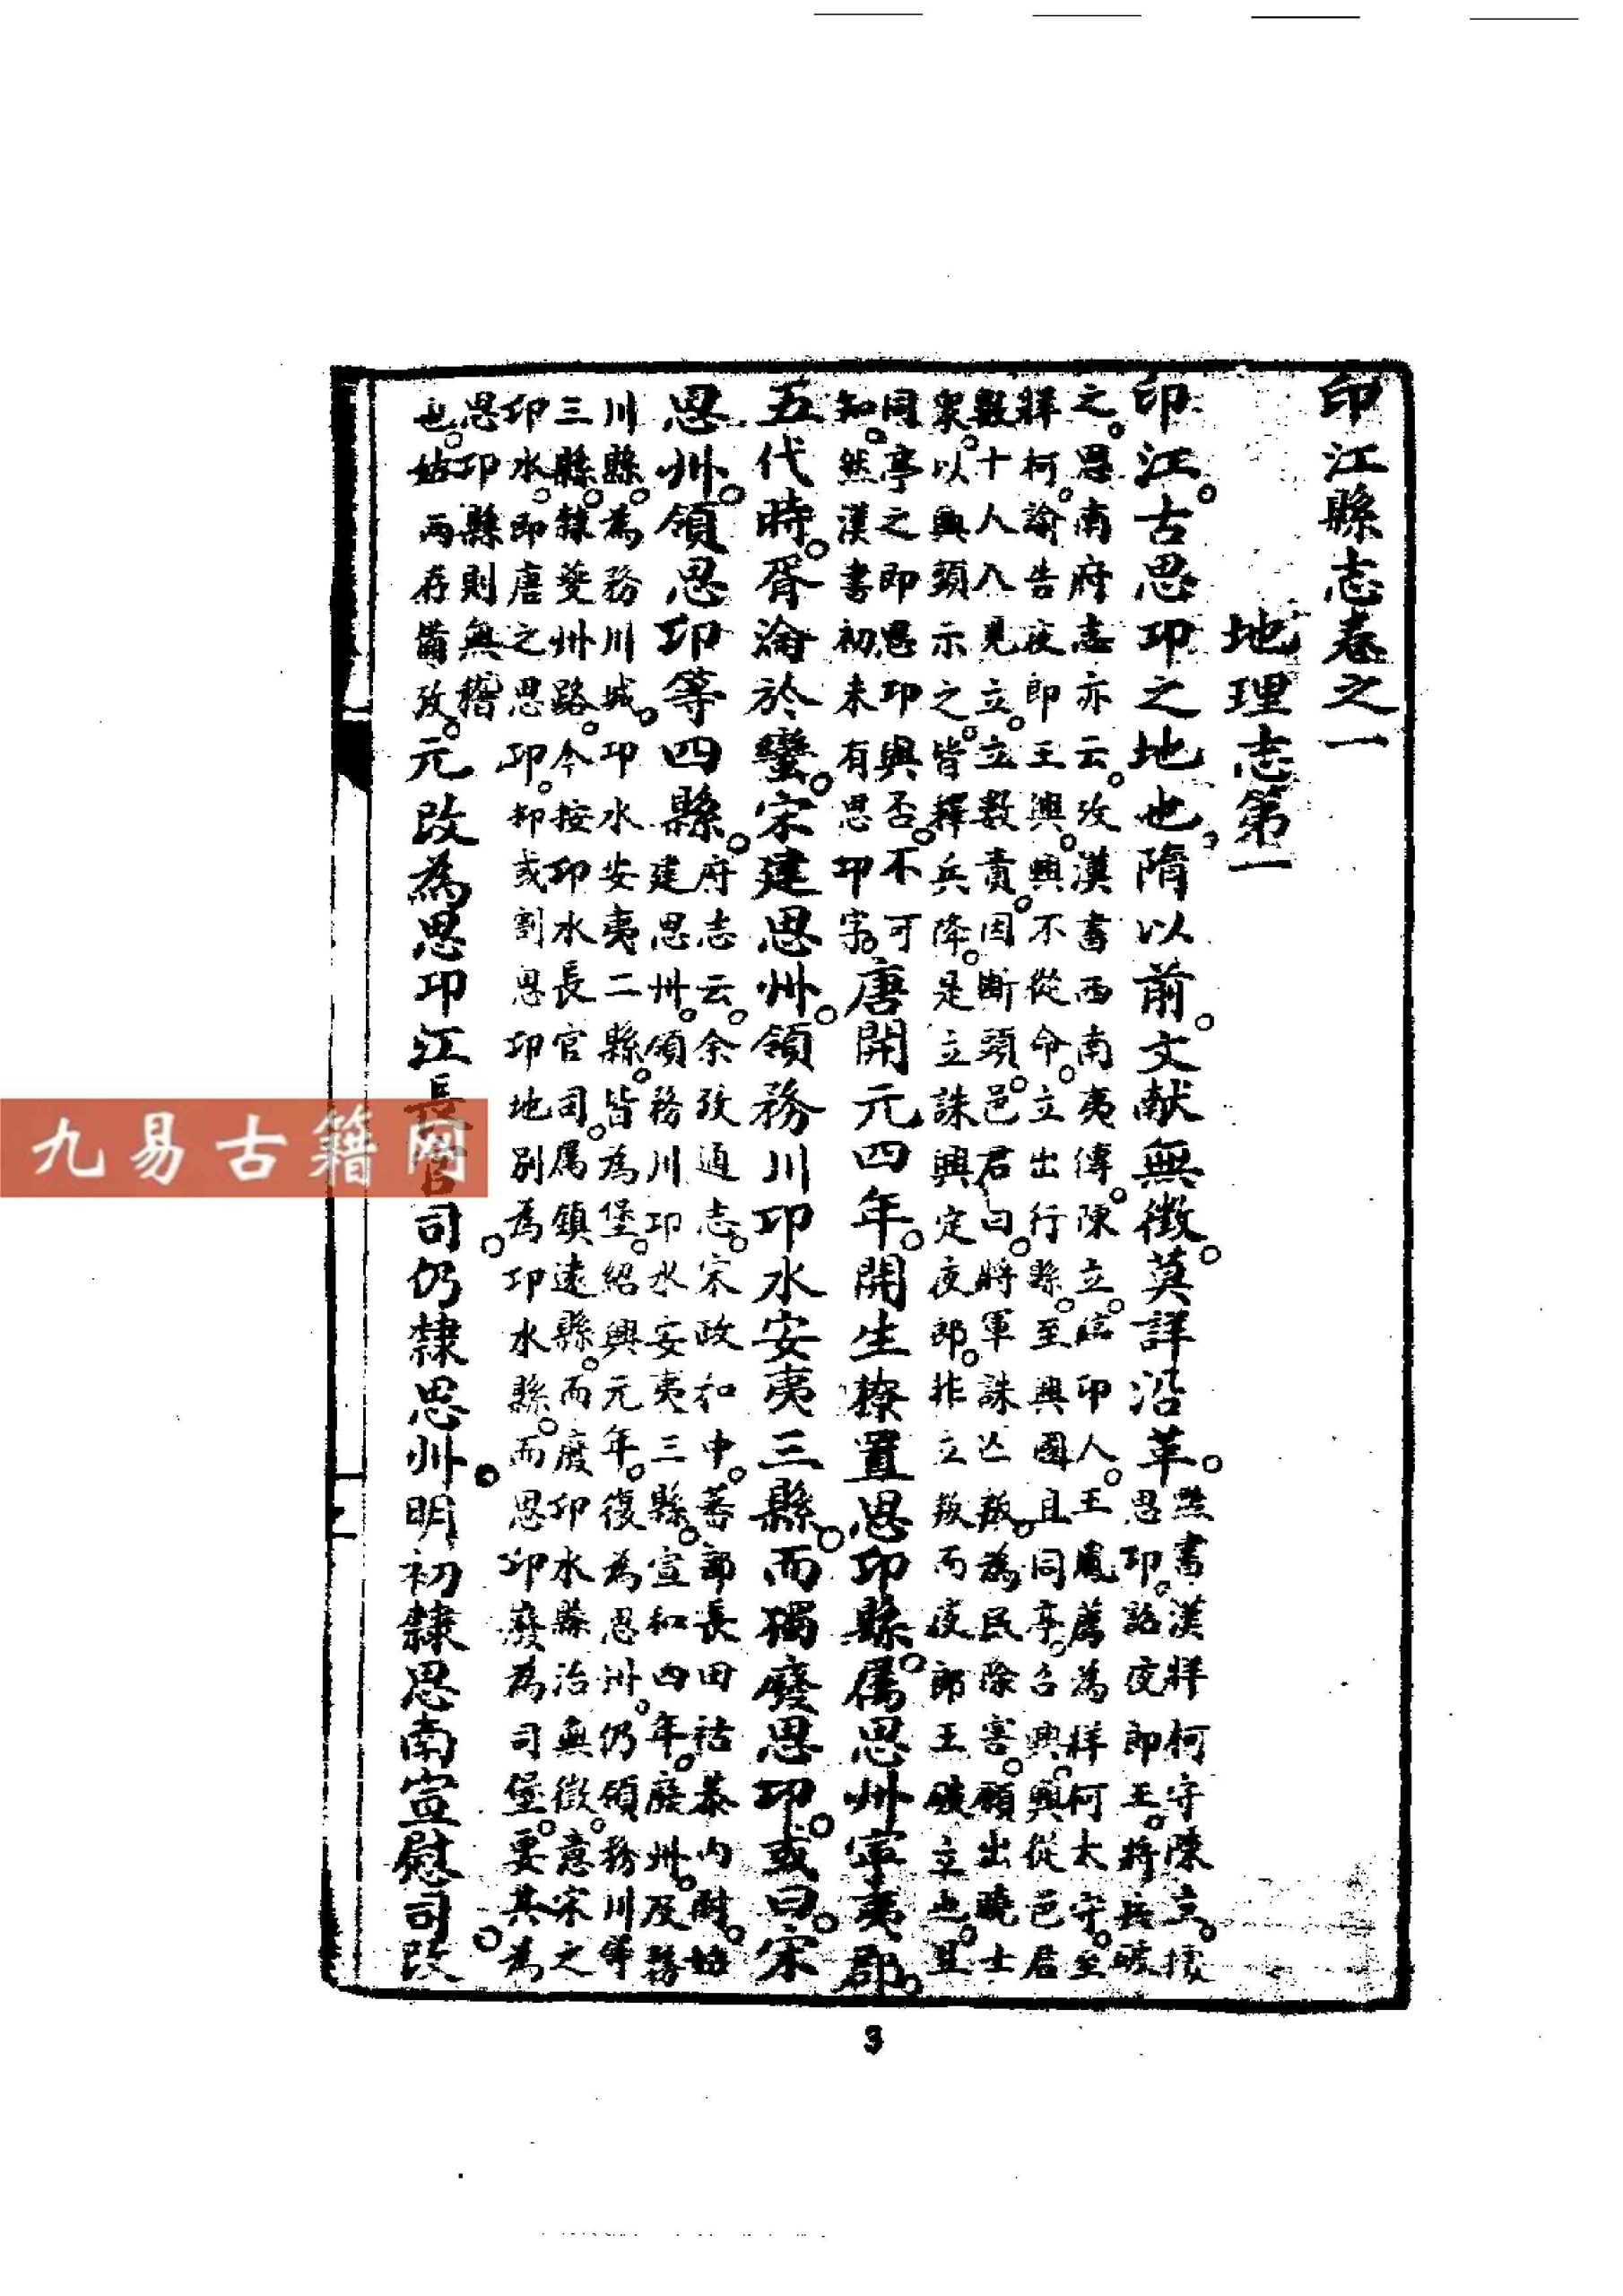 印江縣志卷之一
地理志第一
印江古思邛之地也隋以前文献無徵莫詳沿革
燕書漢牂柯守陳立
思邛詔夜郎王將兵破
之思南府志亦云攷漢書西南夷傳陳立臨邛人王鳳薦為牂柯太守至
牂柯諭告夜郎王興興不從命立出行縣至興國且同亭召興興從邑君
數十人入見立立數責因斷頭邑君曰將軍誅亡叛為民除害願出曉士
衆以興頭示之皆釋兵降是立誅興定夜郎非立叛而夜郎王破立也且
同亭之即思邛與否不可
知然漢書初未有思邛字
唐開元四年開生獠置思邛縣属思州寧夷郡
五代時胥淪於蠻宋建思州領務川邛水安夷三縣而獨廢思邛或曰宋
思州領思邛等四縣
府志云余攷通志宋政和中蕃部長田祐恭内附始
建思州領務川邛水安夷三縣宣和四年廢州及務
川縣為務川城邛水安夷二縣皆為堡紹興元年復為思州仍領務川等
三縣隸夔州路今按邛水長官司属鎮遠縣而廢邛水縣治無徵意宋之
邛水即唐之思邛抑或割思邛地别為邛水縣而思邛廢為司堡要其為
思邛縣則無稽
也姑両存備攷
元改為思邛江長官司仍隸思州明初隸思南宣慰司改
九易古籍网
3